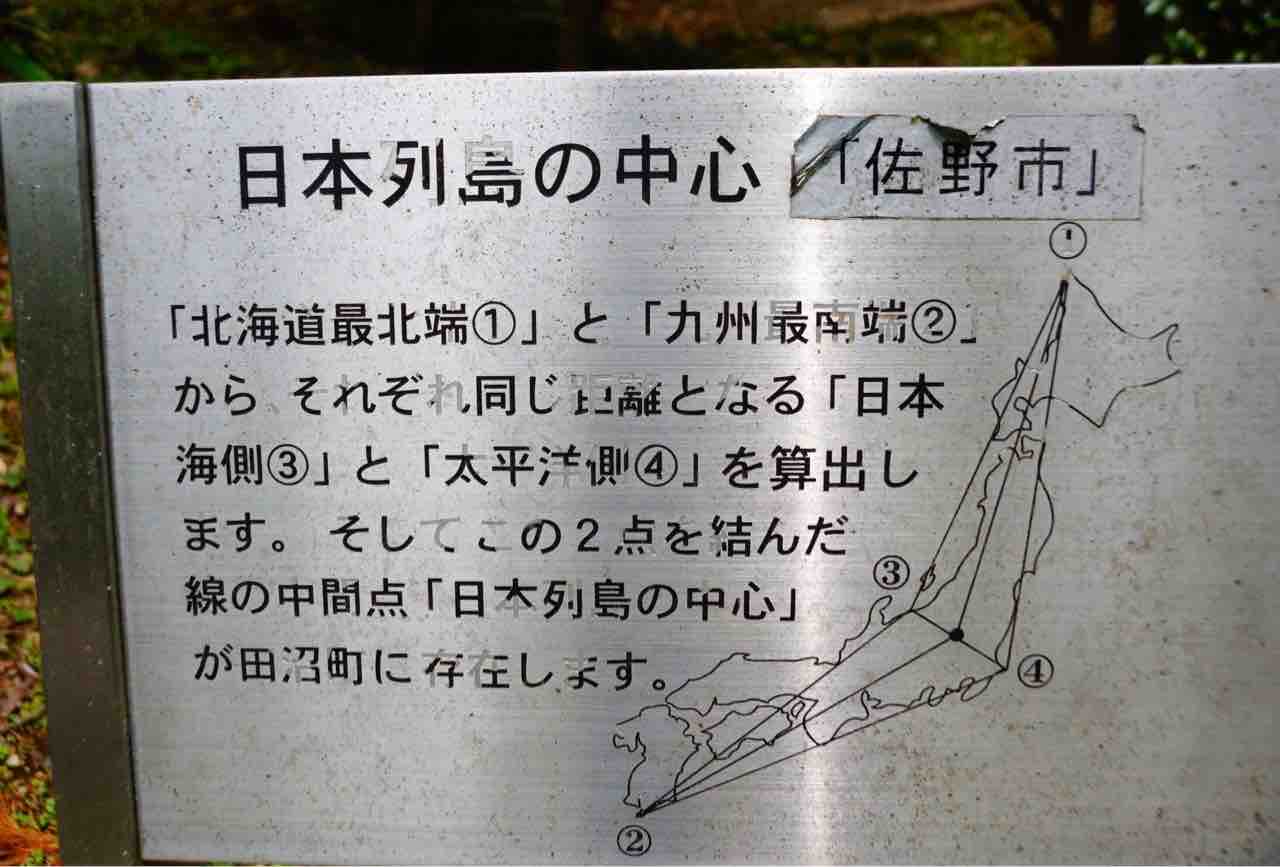 日本列島の中心「佐野市」
「北海道最北端①」と「九州最南端②」
から、それぞれ同じ距離となる「日本
海側③」と「太平洋側④」を算出し
ます。そしてこの２点を結んだ
線の中間点「日本列島の中心」
が田沼町に存在します。
①
③
④
②